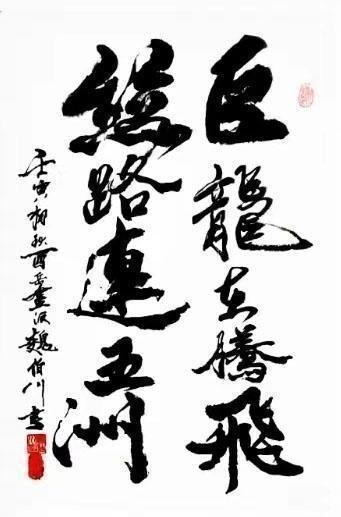 巨龍在騰飛
絲路連五洲
壬寅初秋魏伯川書